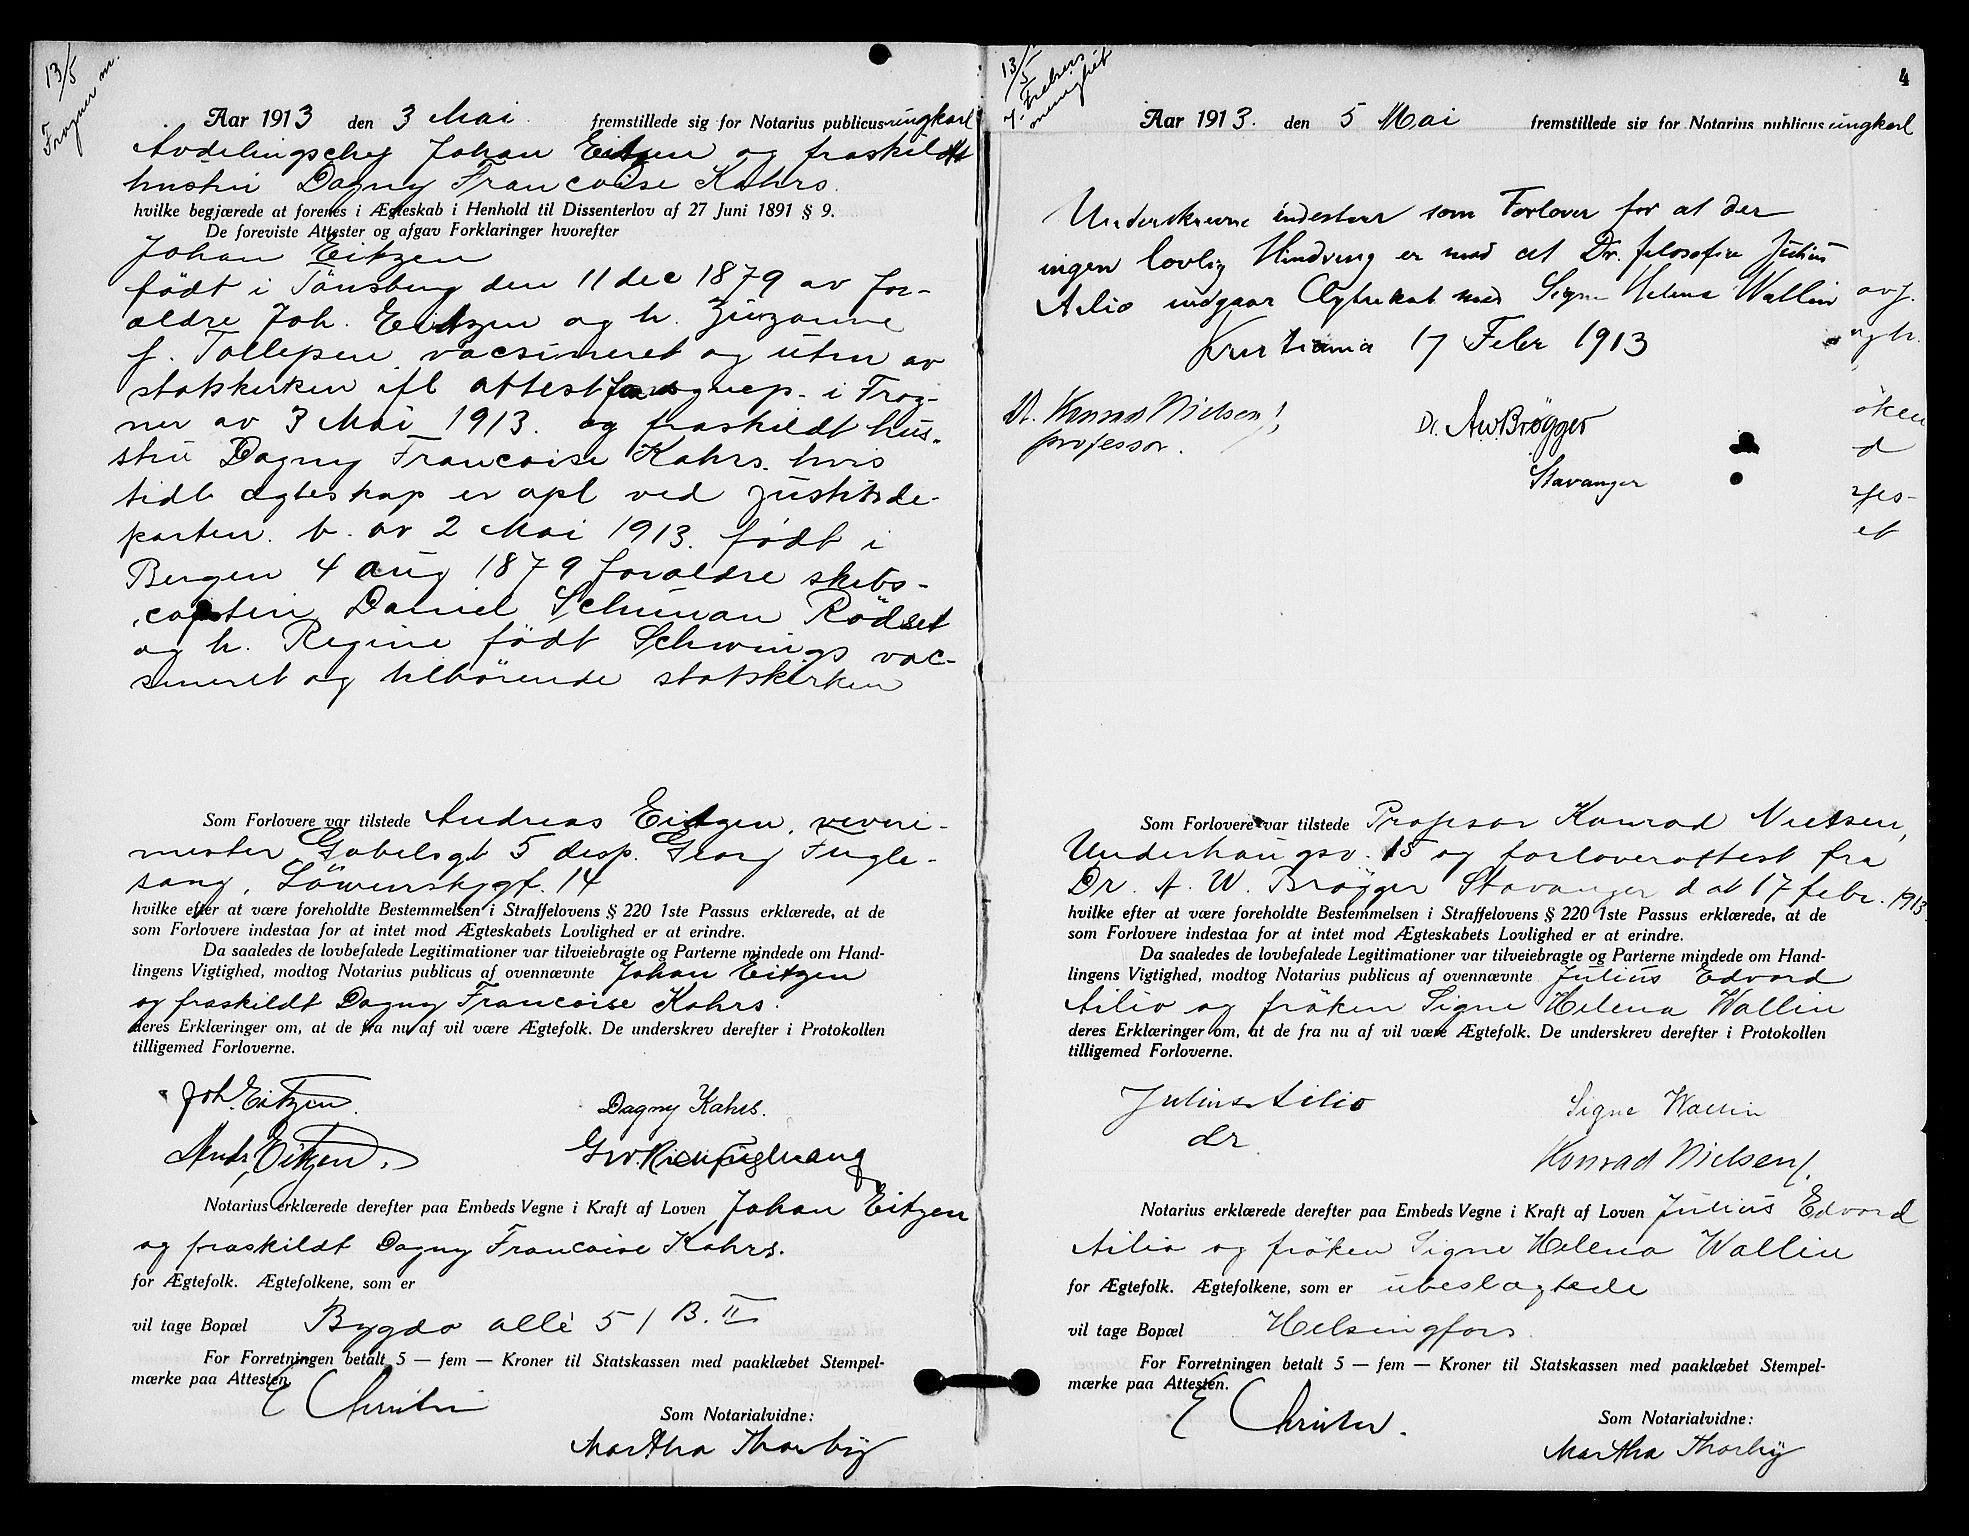 13/5
Frogner m.
Aar 1913 den 3 Mai fremstillede sig for Notarius publicus ungkarl
Avdelingschef Johan Eitzen og fraskildt
hustru Dagny Francoise Kahrs.
hvilke begjærede at forenes i Ægteskab i Henhold til Dissenterlov af 27 Juni 1891 § 9.
De foreviste Attester og afgav Forklaringer hvorefter
Johan Eitzen
født i Tönsberg den 11 dec 1879 av for-
ældre Joh. Eitzen og h. Zuzanne
f. Tollefsen vacsineret og utm av
statskirken ifl attest fra sognep. i Frog-
ner av 3 Mai 1913. og fraskildt hus-
tru Dagny Francoise Kahrs. hvis
tidl ægteskap er opl ved justitsde-
parten. b. av 2 Mai 1913. født i
Bergen 4 aug 1879 forældre skibs-
captein Daniel Schuman Rödset
og h. Regine født Schwings vac-
sineret og tilhörende statskirken
Som Forlovere var tilstede Andreas Eitzen,
mester Gabelsgt 5 desp. Georg Fugle-
sang, Löwenskygt. 14
hvilke efter at være foreholdte Bestemmelsen i Straffelovens § 220 1ste Passus erklærede, at de
som Forlovere indestaa for at intet mod Ægteskabets Lovlighed er at erindre.
Da saaledes de lovbefalede Legitimationer var tilveiebragte og Parterne mindede om Hand-
lingens Vigtighed, modtog Notarius publicus af ovennævnte Johan Eitzen
og fraskildt Dagny Francoise Kahrs.
deres Erklæringer om, at de fra nu af vil være Ægtefolk. De underskrev derefter i Protokollen
tilligemed Forloverne.
Joh. Eitzen. Dagny Kahrs.
Andr. Eitzen. Fuglesang
Notarius erklærede derefter paa Embeds Vegne i Kraft af Loven Johan Eitzen
og fraskildt Dagny Francoise Kahrs.
for Ægtefolk. Ægtefolkene, som er
vil tage Bopæl Bygdø allé 51 B. II
For Forretningen betalt 5 — fem — Kroner til Statskassen med paaklæbet Stempel-
mærke paa Attesten.
E
Som Notarialvidne:
Martha Thorby
13/5
menighet
4
Aar 1913. den 5 Mai fremstillede sig for Notarius publicus ungkarl
Underskrevne indestaar som Forlover for at der
ingen lovlig Hindring er mod at Dr. filosofiæ Julius
Ailio indgaar Ægteskab med Signe Helena Wallin
Kristiania 17 Febr 1913
av f.
og h.
öken
d
et
Dr. Konrad Nielsen
professor.
Dr. A.W. Brøgger
Stavanger
Som Forlovere var tilstede Professor Konrad Nielsen,
Underhaugsv. 15 og forloverattest fra
Dr. A. W. Brøgger Stavanger dat 17 febr. 1913
hvilke efter at være foreholdte Bestemmelsen i Straffelovens § 220 1ste Passus erklærede, at de
som Forlovere indestaa for at intet mod Ægteskabets Lovlighed er at erindre.
Da saaledes de lovbefalede Legitimationer var tilveiebragte og Parterne mindede om Hand-
lingens Vigtighed, modtog Notarius publicus af ovennævnte Julius Edvard
Ailio og fröken Signe Helena Wallin
deres Erklæringer om, at de fra nu af vil være Ægtefolk. De underskrev derefter i Protokollen
tilligemed Forloverne.
Julius Ailio Signe Wallin
dr
Konrad Nielsen
Notarius erklærede derefter paa Embeds Vegne i Kraft af Loven Julius Edvard
Ailio og fröken Signe Helena Wallin
for Ægtefolk. Ægtefolkene, som er ubeslægtede
vil tage Bopæl Helsingfors
For Forretningen betalt 5 — fem — Kroner til Statskassen med paaklæbet Stempel-
mærke paa Attesten.
E
Som Notarialvidne:
Martha Thorby